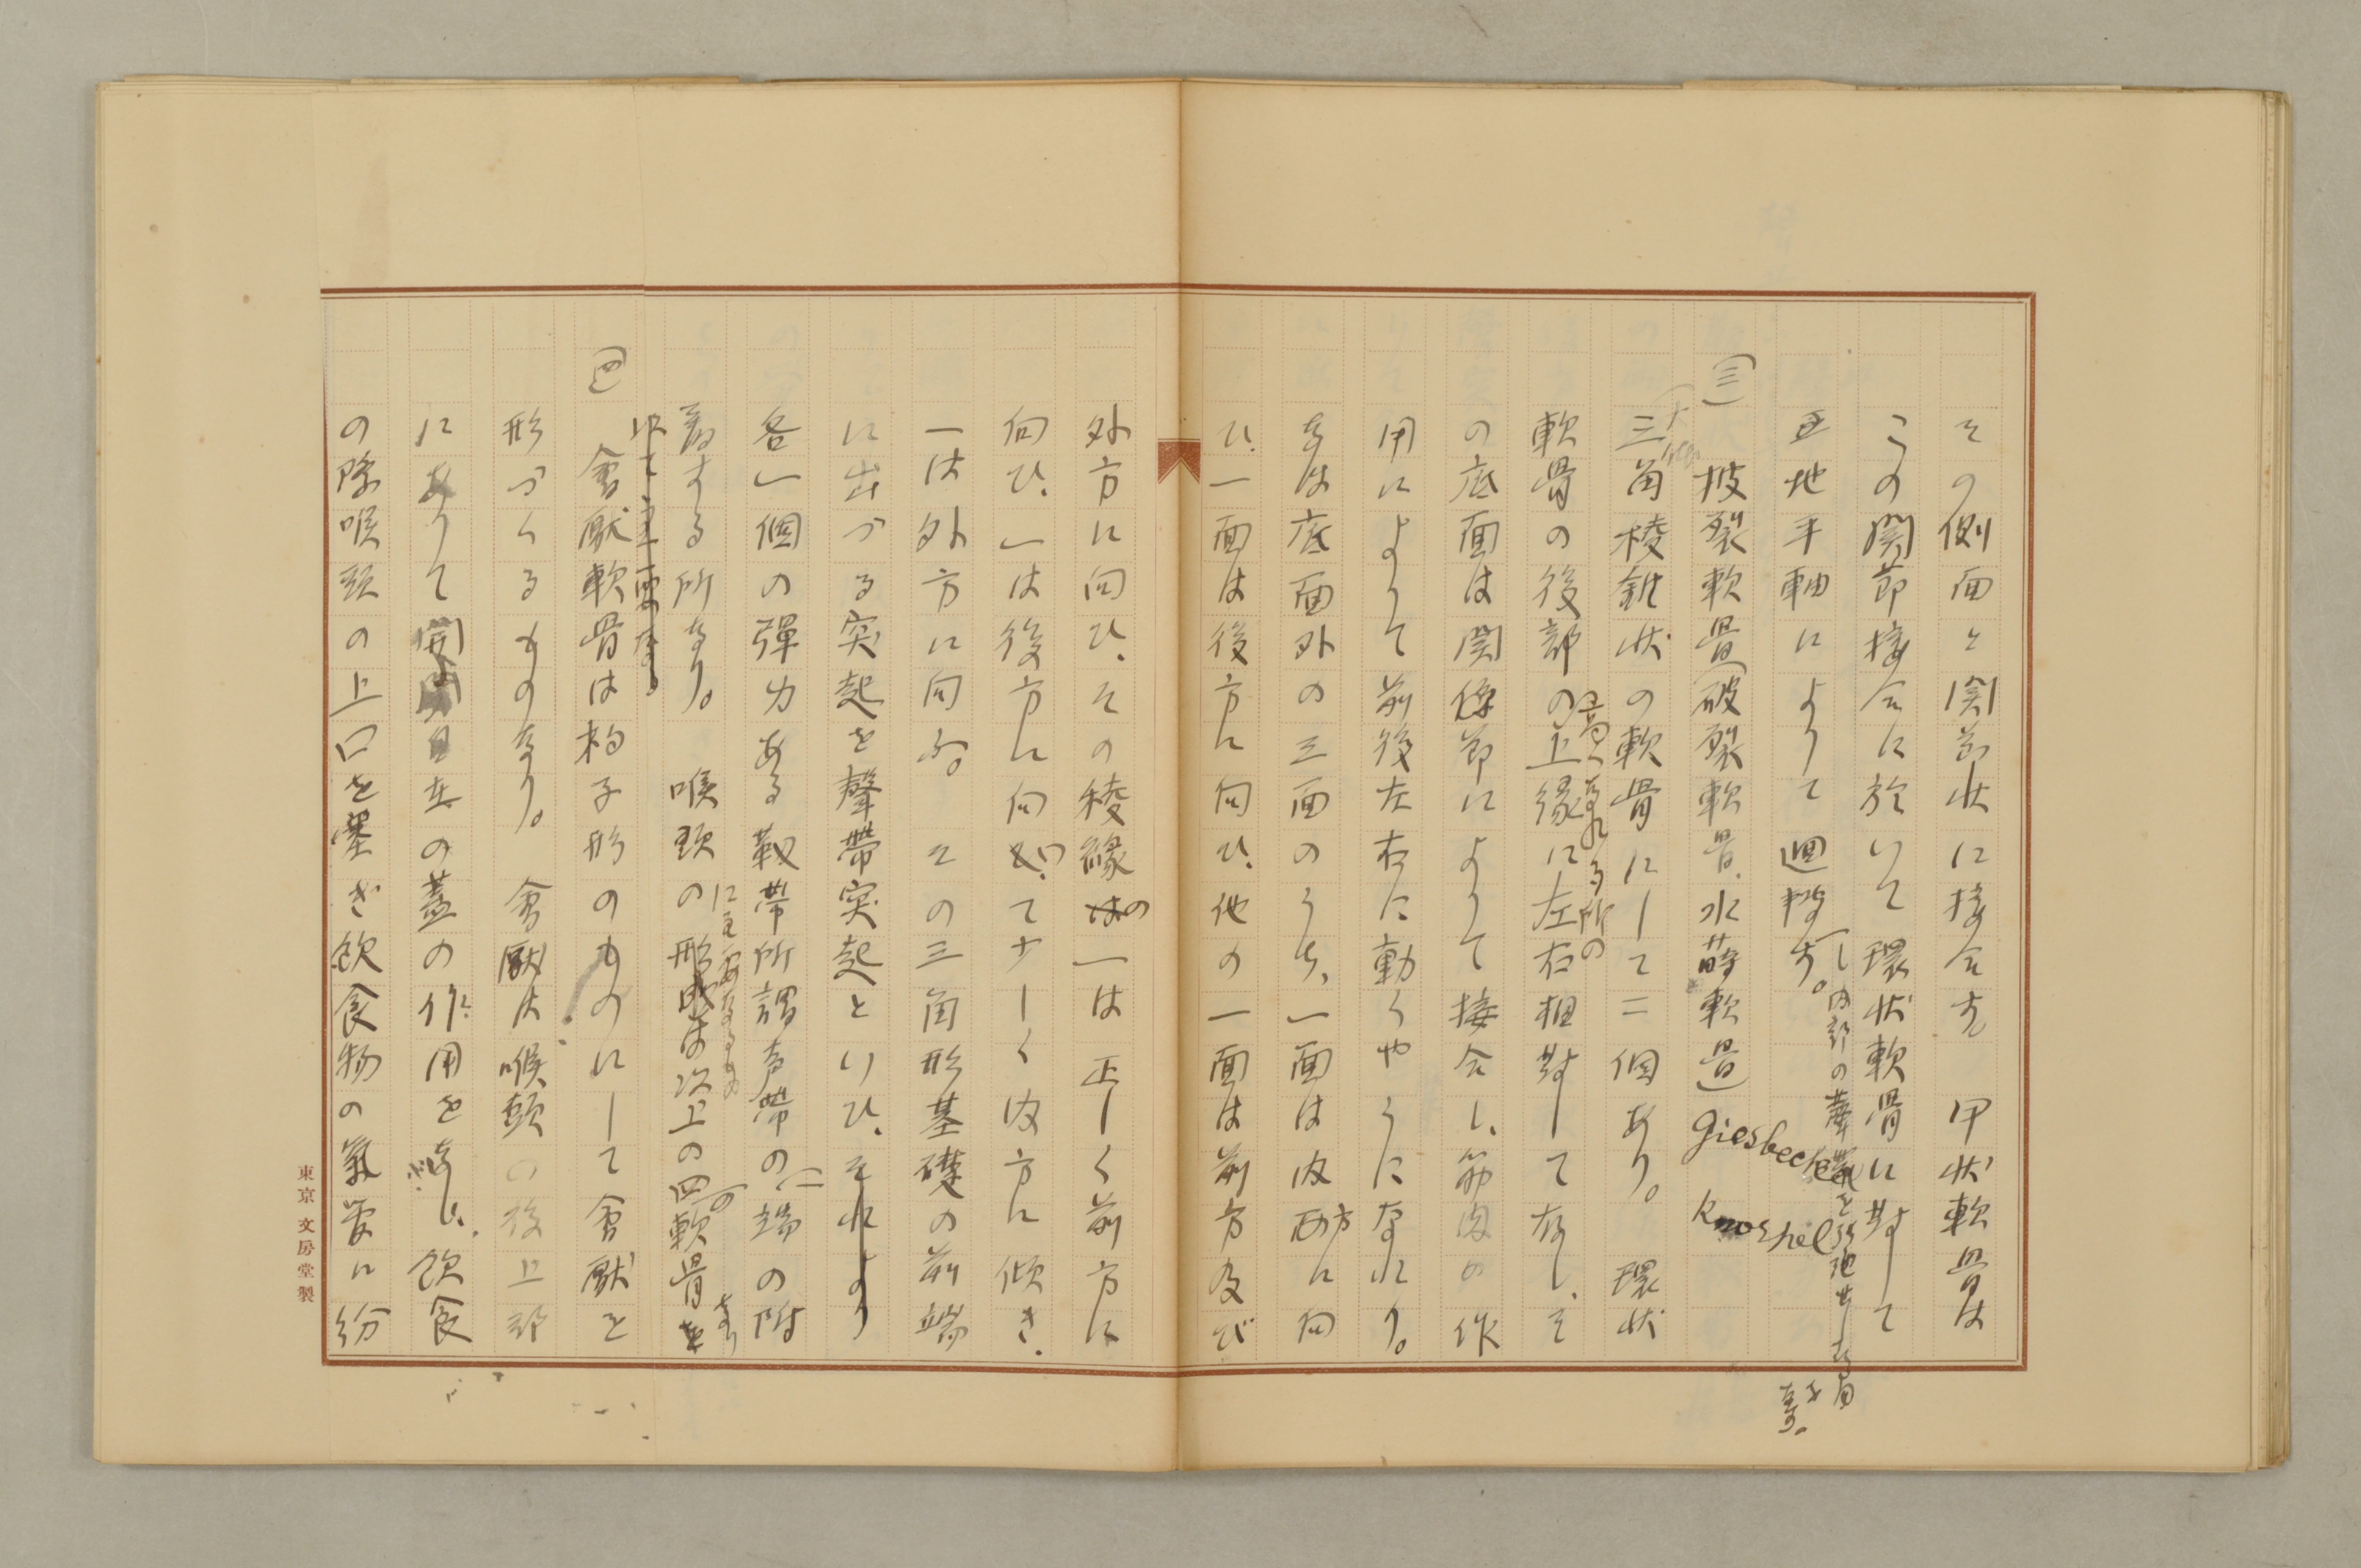 その側面と関節状に接合す 甲状軟骨は
この関節接合に於いて環状軟骨に対して
地平軸によりて廻轉す。
し内部の
なり。
(三)
披裂軟骨(破裂軟骨、水蒔軟骨) Giesbecken Knorpel
三角稜錐状の軟骨にして二個あり。 環状
高くなれる所の
軟骨の後部の上縁に左右相対して存し、そ
の底面は関係節によりて接合し、筋肉の作
用によりて前後左右に動くやうになれり。
底面外の三面のうち、一面は内方に向
ひ、一面は後方に向ひ、他の一面は前方及び
外方に向ひ、その稜縁の一は正しく前方に
向ひ、一は後方に向ひて少しく内方に傾き、
一は外方に向ふ。 その三角形基礎の前端
に出づる突起を聲帯突起といひ、それより
各一個の彈力ある靱帯所謂声帯の一端の附
着する所なり。 喉頭の形成は次上の四軟骨
に主要なるもの
なり
(四)
會厭軟骨は杓子形のものにして會厭を
形づくるものなり。 會厭は喉頭の後上部
にありて開閉自在の蓋の作用を為し、飲食
の際喉頭の上口を塞ぎ飲食物の氣管に紛
東京 文房堂製